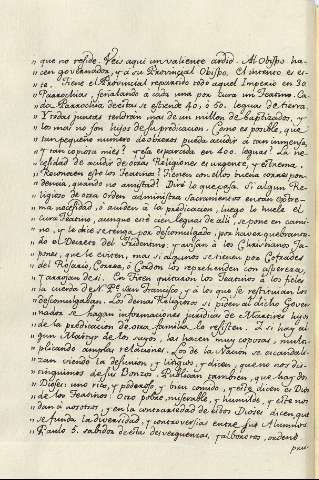 „ que no reside. Veis aqui un valiente ardid. Al Obispo ha-
„ cen governador, y a su Provincial Obispo. El intento es es-
„ te. Tiene el Provincial repartido todo aquel Imperio en 30
„ Parrochias, señalando a cada una por cura un Teatino. Ca-
„ da Parrochia de estas se estiende 40, ó 50 leguas de tierra.
„ Y todas juntas tendràn mas de un millon de baptizados, y
„ los mas no son hijos de su predicacion. Como es posible, que
„ tan pequeño numero de obreros pueda acudir a tan inmensa,
„ y tan copiosa mies? y ella esparcida en 400 leguas? La ne-
„ cesidad de acudir de otras Religiones es urgente, y extrema.
„ Reconocen esto los Teatinos? Tienen con ellos buena correspon-
„ dencia, quando no amistad? Diré lo que pasa. Si algun Re-
„ ligioso de otra orden administra Sacramentos en tan extre-
„ ma necesidad, ó acude a la predicacion, luego lo huele el
„ cura Teatino, aunque esté cien leguas de alli, se pone en cami-
„ no, y le dice se tenga por descomulgado, por haver quebranta-
„ do el Decreto del Tridentino: y avisan à los Christianos Ja-
„ pones, que le eviten, mas si algunos se tienen por Cofrades
„ del Rosario, Correa, ó Cordon los reprehenden con aspereza,
„ y arrojan de si. La Fiesta quitaron los Teatinos a los fieles
„ la cuerda de Nro. Pe. San Francisco, y á los que se resistian los
„ descomulgaban. Los demas Religiosos si piden al dicho Gover-
„ nador se hagan informaciones juridicas de Martires hijos
„ de la predicacion de otra familia, lo resisten. I si hay al-
„ gun Martyr de los suyos, las hacen muy copiosas, multi-
„ plicando amplias relaciones. Los de la Nacion se escandali-
„ zan viendo la desunion, y litigios, y dicen, que no nos dis-
„ tinguimos de sus Bonzos. Publican tambien, que hay dos
„ Dioses: uno rico, y poderoso, y bien comido, y este dicen es Dios
„ de los Teatinos. Otro pobre, miserable, y humilde, y este nos
„ dan á nosotros, y en la contrariedad de estos Dioses dicen que
„ se funda la diversidad, y controversias entre sus Alumnos.
„ Paulo 5. sabidos de esta desverguenzas, y alborotos, ordenó